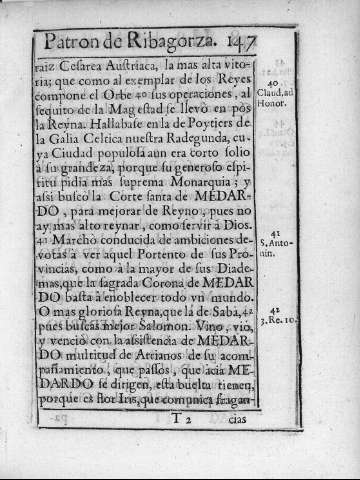 Patron de Ribagorza. 147
raiz Cesarea Austriaca, la mas alta vito-
ria; que como al exemplar de los Reyes
compone el Orbe 40 sus operaciones, al
sequito de la Magestad se llevò en pòs
la Reyna. Hallabase en la de Poytiers de
la Galia Celtica nuestra Radegunda, cu-
ya Ciudad populosa aun era corto solio
à su grandeza, porque su generoso espi-
ritu pidia mas suprema Monarquia; y
assi buscò la Corte santa de MEDAR-
DO, para mejorar de Reyno, pues no
ay mas alto reynar, como servir à Dios.
41 Marchò conducida de ambiciones de-
votas à ver aquel Portento de sus Pro-
vincias, como à la mayor de sus Diade-
mas, que la sagrada Corona de MEDAR
DO basta à enoblecer todo vn mundo.
O mas gloriosa Reyna, que la de Sabà, 42
pues buscas mejor Salomon. Vino, viò,
y venciò con la assistencia de MEDAR-
DO multitud de Arrianos de su acom-
pañamiento, que passos, que àcia ME-
DARDO se dirigen, esta buelta tienen,
porque es flor Iris, que comunica fragan-
T 2 cias
40
Claud. ad
Honor.
41
S. Anto-
nin.
42
3. Re. 10.